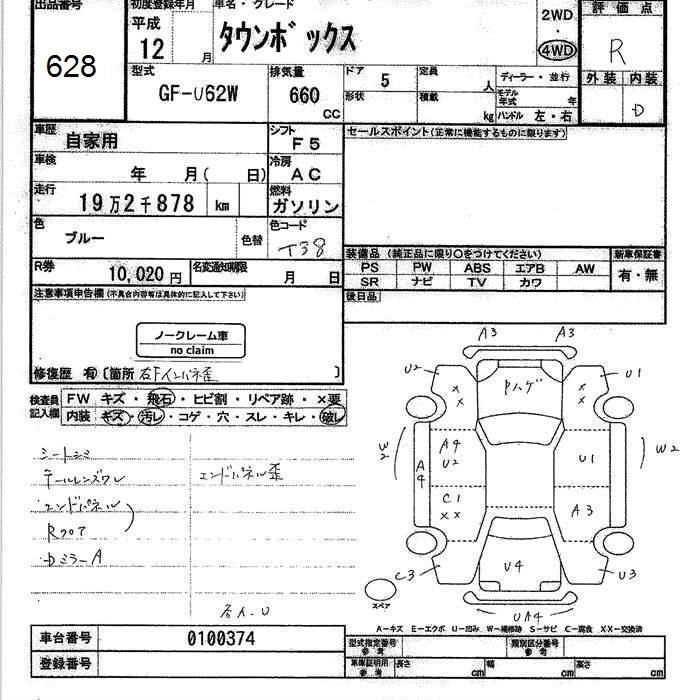 出品番号 初度登録年月 車名・グレード 評価点
628
平成 12 月
タウンボックス
2WD
・
4WD
R
型式 GF-U62W
排気量 660 CC
ドア 5
定員 人
形状
積載 kg
ディーラー・並行
モデル年式 年
ハンドル 左・右
外装 内装
D
車歴 自家用
シフト F5
セールスポイント(正常に機能するものに限ります)
車検 年 月( 日)
冷房 AC
走行 19万2千878 km
燃料 ガソリン
色 ブルー 色替
色コード T38
R券 10,020円
名変通知期限 月 日
装備品(純正品に限り○をつけてください) 新車保証書
PS PW ABS エアB AW
SR ナビ TV カワ
有・無
後日品
注意事項申告欄(不具合内容等は具体的に記入して下さい)
ノークレーム車
no claim
修復歴 有〔箇所 右Fインパネ歪 〕
検査員記入欄
FW キズ・飛石・ヒビ割・リペア跡・×要
内装 キズ・汚レ・コゲ・穴・スレ・キレ・破レ
シートシミ
テールレンズワレ
エンドパネル
Rフロア
Dミラー A
エンドパネル歪
A3 A3
U2 U1
Pハゲ
X X
X X
W2 W2
A4
A4
U2
U1
C1
XX
A3
C3 U3
U4
UA4
スペア
A-キズ E-エクボ U-凹み W-補修跡 S-サビ C-腐食 XX-交換済
車台番号 0100374
登録番号
型式指定番号 参考
類別区分番号 参考
車庫証明用 参考
長さ cm
幅 cm
高さ cm